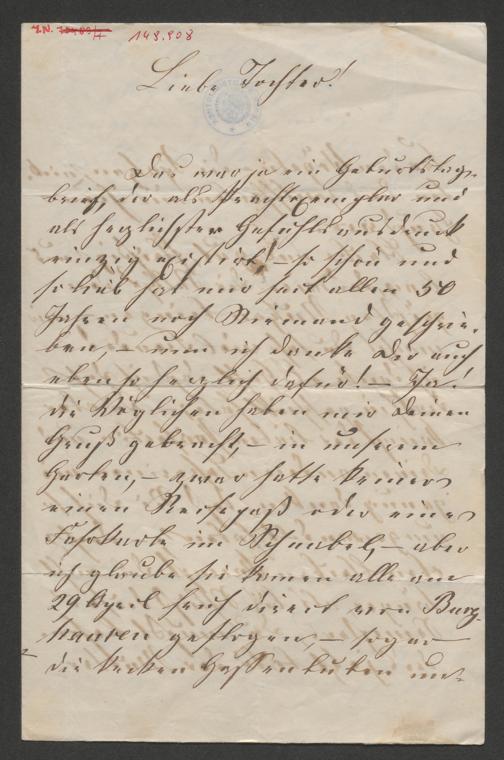 I.N. 148.908
Liebe Tochter!
Das war ja ein Geburtstags-
brief, der als Prachtexemplar und
als herzlichster Gefühlsausdruck
einzig existirt! – so schön und
so lieb hat mir seit allen 50
Jahren noch Niemand geschrie-
ben, – nun ich danke Dir auch
ebenso herzlich dafür! – Ja!
die Vöglichen haben mir Deinen
Gruß gebracht, – in unserem
Garten, – zwar hatte keiner
einen Reisepaß oder eine
Fahrkarte im Schnabel, – aber
ich glaube sie kamen alle am
29 April früh direct von Burg-
hausen geflogen, – sogar
die kecken Gassenbuben un-